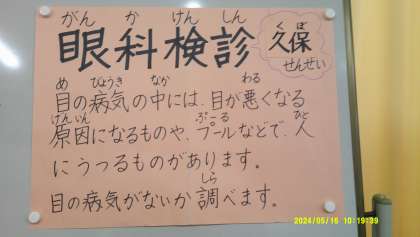 がんかけんしん
眼科検診
くぼ
久保
せんせい
め びょうき なか わる
目の病気の中には、目が悪くなる
げんいん ぷーる ひと
原因になるものや、プールなどで、人
にうつるものがあります。
しら
目の病気がないか調べます。
2024/05/16 10:19:39